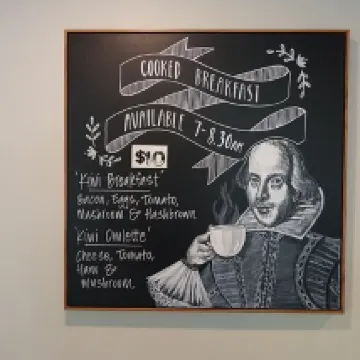 COOKED BREAKFAST
AVAILABLE 7-8.30AM
$10
'Kiwi Breakfast'
Bacon, Eggs, Tomato,
Mushroom & Hashbrown
'Kiwi Omlette'
Cheese, Tomato,
Ham &
Mushroom